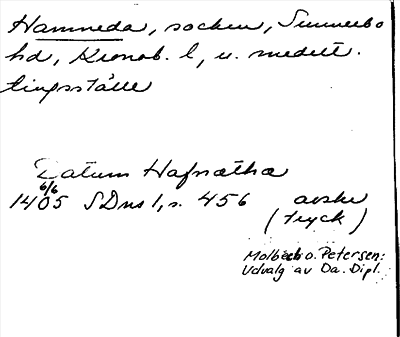 Hamneda, socken, Sunnerbo
hd, Kronob. l, u. medelt.
tingsställe
Datum Hafnætha
6/6
1405 SDns 1, s. 456 avskr
(tryck)
Molbech o. Petersen:
Udvalg av Da. Dipl.